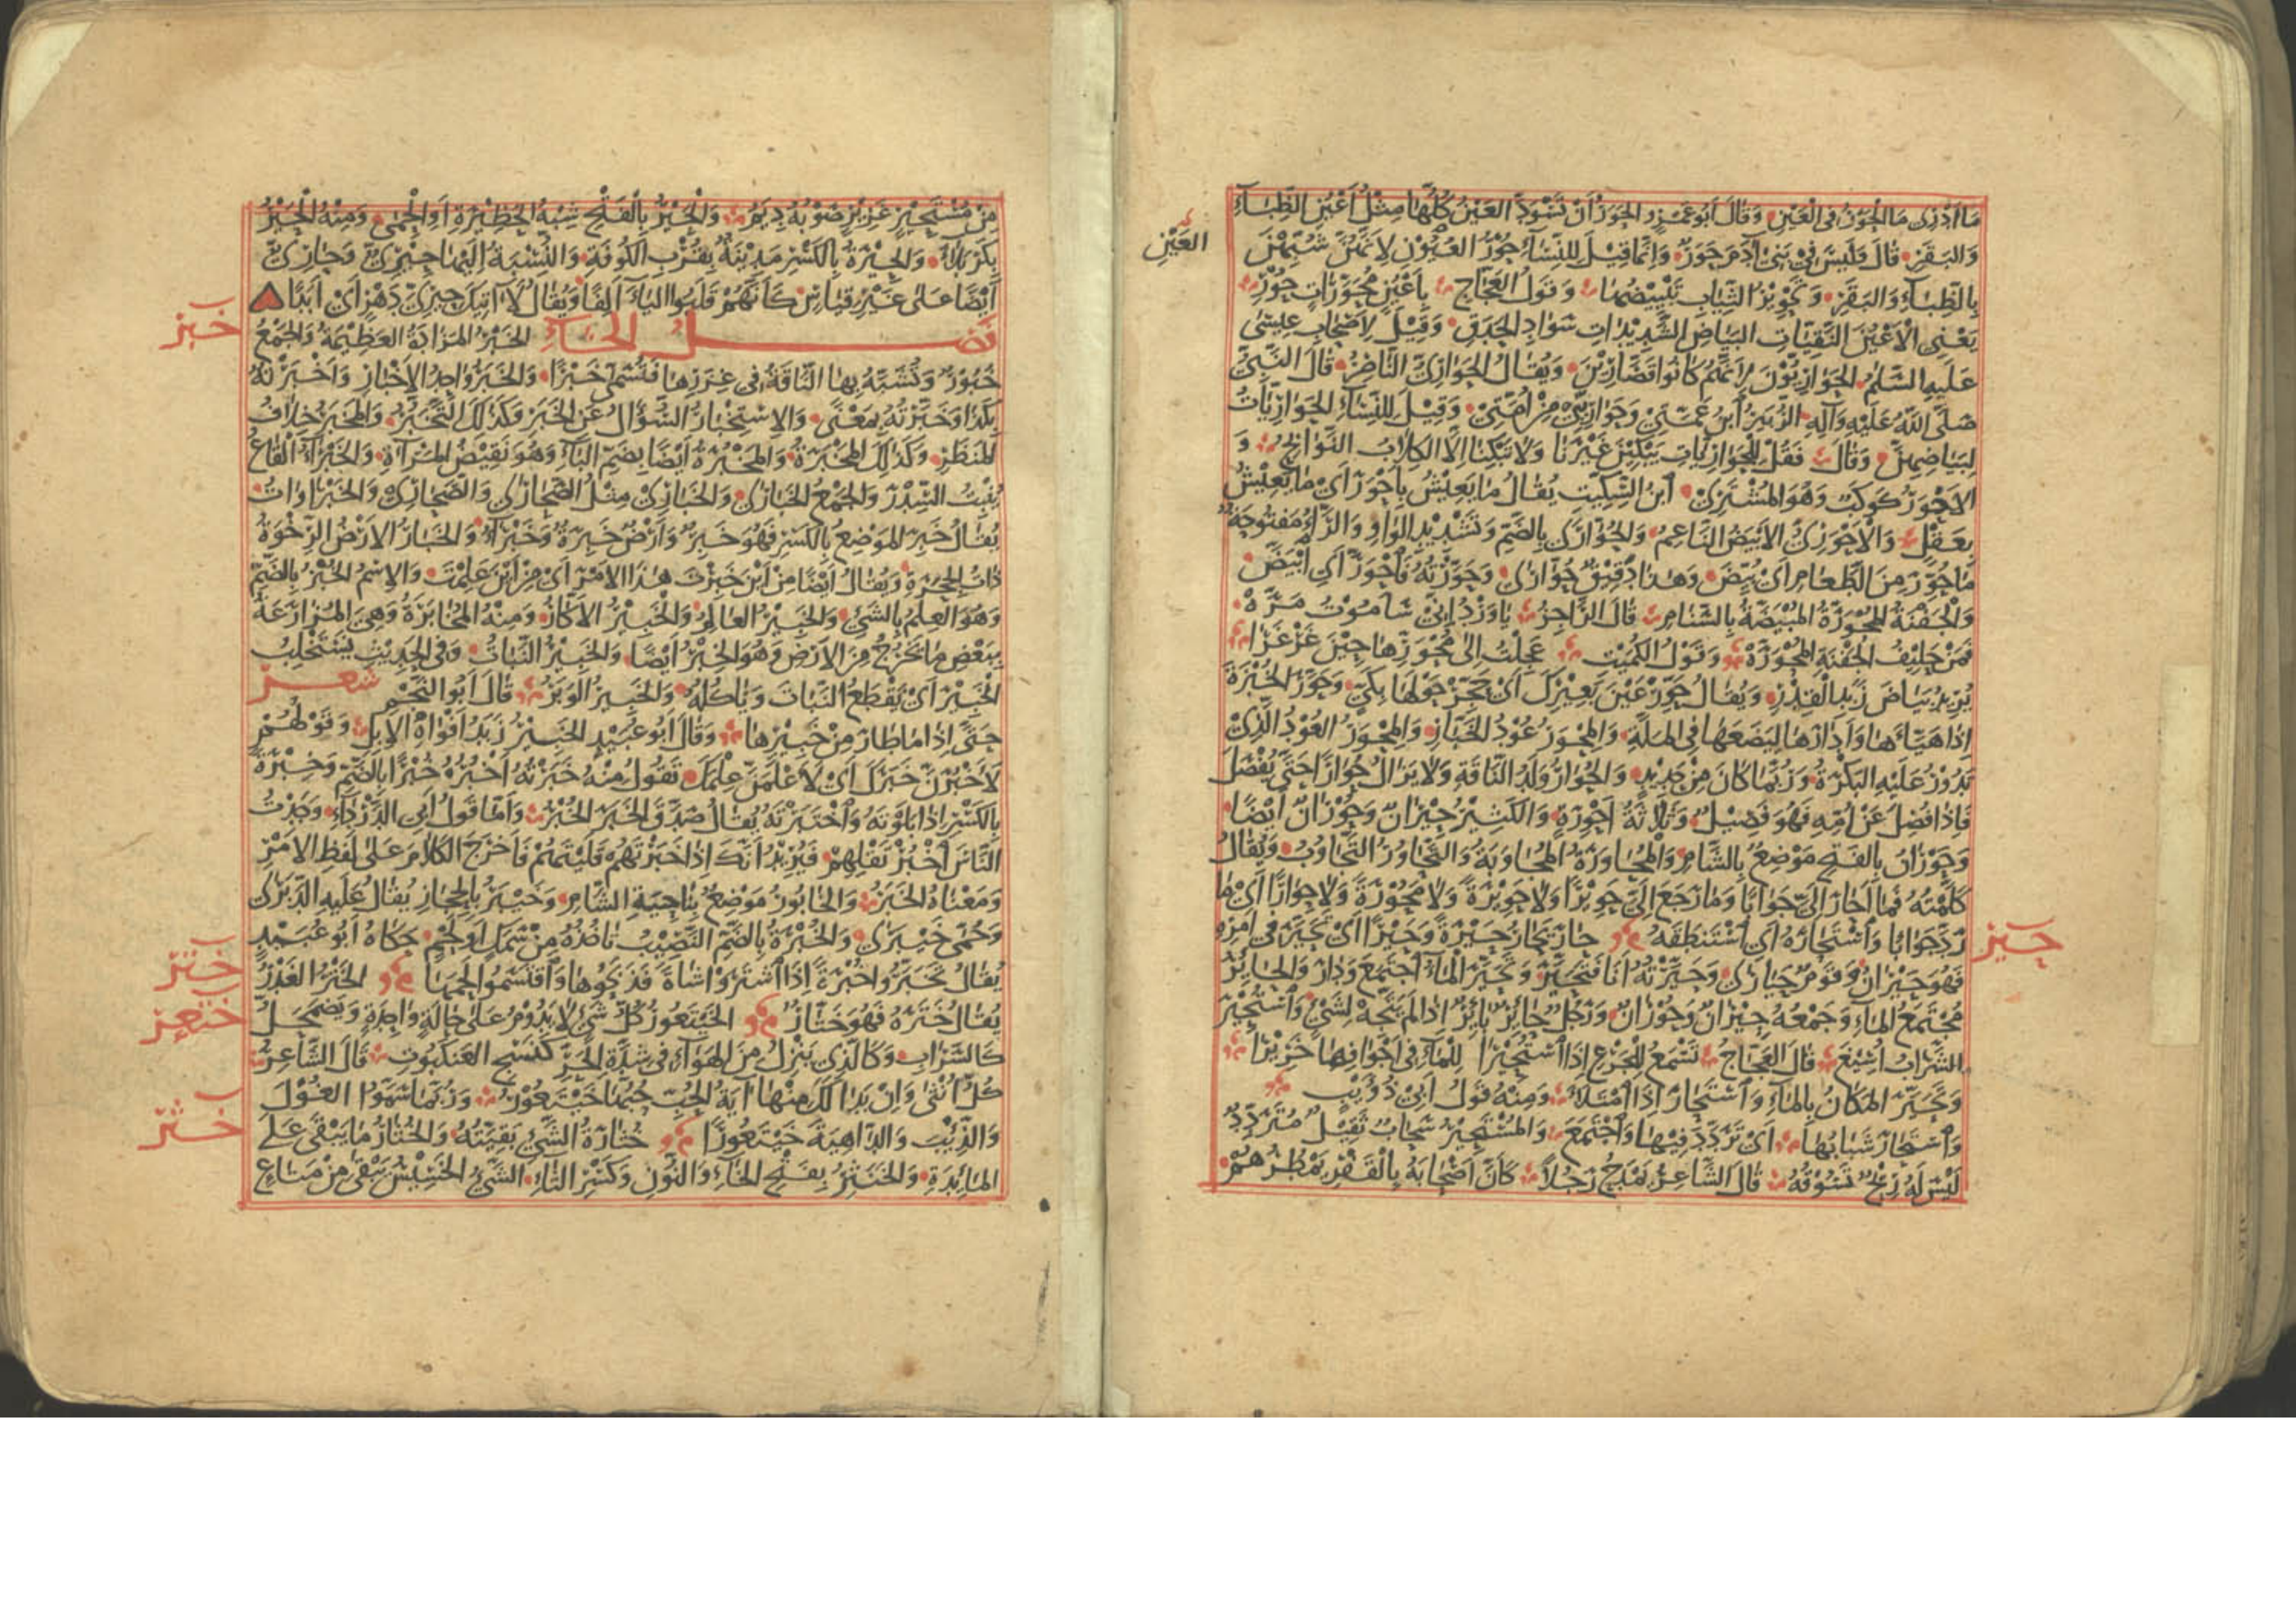 مَا أَدْرِي مَا الْحَوَرُ فِي الْعَيْنِ وَقَالَ أَبُو عَمْرٍو الحَوَرُ أَنْ تَسْوَدَّ العَيْنُ كُلُّهَا مِثْلُ أَعْيُنِ الظِّبَاءِ
العَيْنِ
وَالبَقَرِ قَالَ وَلَيْسَ فِي بَنِي آدَمَ حَوَرٌ وَإِنَّمَا قِيْلَ لِلنِّسَاءِ حُوْرُ العُيُوْنِ لِأَنَّهُنَّ شُبِّهْنَ
بِالظِّبَاءِ وَالبَقَرِ وَتَحْوِيْرُ الثِّيَابِ تَبْيِيْضُهَا وَقَوْلُ العَجَّاجِ بِأَعْيُنٍ مُحَوَّرَاتٍ حُوْرِ
يَعْنِي الأَعْيُنَ النَّقِيَّاتِ البَيَاضِ الشَّدِيْدَاتِ سَوَادِ الحَدَقِ وَقِيْلَ لِأَصْحَابِ عِيسَى
عَلَيهِ السَّلَمُ الحَوَارِيُّوْنَ لِأَنَّهُمْ كَانُوا قَصَّارِيْنَ وَيُقَالُ الحَوَارِيُّ النَّاصِرُ قَالَ النَّبِيُّ
صَلَّى اللهُ عَلَيْهِ وَآلِهِ الزُّبَيْرُ ابْنُ عَمَّتِيْ وَحَوَارِيِّيْ مِنْ أُمَّتِيْ وَقِيْلَ لِلنِّسَاءِ الحَوَارِيَّاتُ
لِبَيَاضِهِنَّ وَقَالَ فَقُلْ لِلْحَوَارِيَّاتِ يَبْكِيْنَ غَيْرَنَا وَلَا تَبْكِنَا إِلَّا الكِلَابُ النَّوَابِحُ وَ
الأَحْوَرُ كَوْكَبٌ وَهُوَ المُشْتَرِيْ ابْنُ السِّكِّيْتِ يُقَالُ مَا يَعِيْشُ بِأَحْوَرَ أَيْ مَا يَعِيْشُ
بِعَقْلٍ وَالأَحْوَرِيُّ الأَبْيَضُ النَّاعِمُ وَالحُوَّارَى بِالضَّمِّ وَتَشْدِيْدِ الوَاوِ وَالرَّاءُ مَفْتُوحَةٌ
مَا حُوِّرَ مِنَ الطَّعَامِ أَيْ بُيِّضَ وَهَذَا دَقِيْقٌ حُوَّارَى وَحَوَّرْتُهُ فَاحْوَرَّ أَيِ ابْيَضَّ
وَالْجَفْنَةُ المُحْوَرَّةُ المُبْيَضَّةُ بِالسَّنَامِ قَالَ الرَّاجِزُ يَا وَرْدُ إِنِّيْ سَأَمُوْتُ مَرَّهْ
فَمَنْ حَلِيْفُ الجَفْنَةِ المُحْوَرَّهْ وَقَوْلُ الكُمَيْتِ عَجِلْتُ إِلَى مُحْوَرِّهَا حِيْنَ غَرْغَرَا
يُرِيْدُ بَيَاضَ زَبَدِ القِدْرِ وَيُقَالُ حَوِّرْ عَيْنَ بَعِيْرِكَ أَيْ حَجِّرْ حَوْلَهَا بِكَيٍّ وَحَوَّرَ الخُبْزَةَ
إِذَا هَيَّأَهَا وَأَدَارَهَا لِيَضَعَهَا فِي المَلَّةِ وَالمِحْوَرُ عُوْدُ الخَبَّازِ وَالمِحْوَرُ العُوْدُ الَّذِيْ
تَدُوْرُ عَلَيْهِ البَكْرَةُ وَرُبَّمَا كَانَ مِنْ حَدِيْدٍ وَالحُوَارُ وَلَدُ النَّاقَةِ وَلَا يَزَالُ حُوَارًا حَتَّى يُفْصَلَ
فَإِذَا فُصِلَ عَنْ أُمِّهِ فَهُوَ فَصِيْلٌ وَثَلَاثَةُ أَحْوِرَةٍ وَالكَثِيْرُ حِيْرَانٌ وَحُوْرَانٌ أَيْضًا
وَحَوْرَانُ بِالفَتْحِ مَوْضِعٌ بِالشَّامِ وَالمُحَاوَرَةُ المُجَاوَبَةُ وَالتَّحَاوُرُ التَّجَاوُبُ وَيُقَالُ
كَلَّمْتُهُ فَمَا أَحَارَ إِلَيَّ جَوَابًا وَمَا رَجَعَ إِلَيَّ حَوِيْرًا وَلَا حَوِيْرَةً وَلَا مَحُوْرَةً وَلَا حِوَارًا أَيْ مَا
رَدَّ جَوَابًا وَاسْتَحَارَهُ أَيِ اسْتَنْطَقَهُ حَارَ يَحَارُ حَيْرَةً وَحَيْرًا أَيْ تَحَيَّرَ فِي أَمْرِهِ
حير
فَهُوَ حَيْرَانُ وَقَوْمٌ حَيَارَى وَحَيَّرْتُهُ أَنَا فَتَحَيَّرَ وَتَحَيَّرَ المَاءُ اجْتَمَعَ وَدَارَ وَالحَايِرُ
مُجْتَمَعُ المَاءِ وَجَمْعُهُ حِيْرَانٌ وَحُوْرَانٌ وَرَجُلٌ حَائِرٌ بَائِرٌ إِذَا لَمْ يَتَّجِهْ لِشَيْءٍ وَاسْتُحِيْرَ
الشَّرَابُ أُسِيْغَ قَالَ العَجَّاجُ تَسْمَعُ لِلْجَرْعِ إِذَا اسْتُحِيْرَا لِلْمَاءِ فِي أَجْوَافِهَا خَرِيْرَا
وَتَحَيَّرَ المَكَانُ بِالمَاءِ وَاسْتَحَارَ إِذَا امْتَلَأَ وَمِنْهُ قَوْلُ أَبِيْ ذُؤَيْبٍ
وَاسْتَحَارَ شَبَابُهَا أَيْ تَرَدَّدَ فِيْهَا وَاجْتَمَعَ وَالمُسْتَحِيْرُ سَحَابٌ ثَقِيْلٌ مُتَرَدِّدٌ
لَيْسَ لَهُ رِيْحٌ تَسُوْقُهُ قَالَ الشَّاعِرُ يَمْدَحُ رَجُلًا كَأَنَّ أَصْحَابَهُ بِالْقَفْرِ يَمْطُرُهُمْ
مِنْ مُسْتَحِيْرٍ غَزِيْرٍ صَوْبُهُ دِيَمُ وَالحَيْرُ بِالفَتْحِ شِبْهُ الحَظِيْرَةِ أَوِ الْحِمَى وَمِنْهُ الْحَيْرُ
بِكَرْبَلَاءَ وَالحِيْرَةُ بِالكَسْرِ مَدِيْنَةٌ بِقُرْبِ الكُوْفَةِ وَالنِّسْبَةُ إِلَيْهَا حِيْرِيٌّ وَحَارِيٌّ
أَيْضًا عَلَى غَيْرِ قِيَاسٍ كَأَنَّهُمْ قَلَبُوا اليَاءَ أَلِفًا وَيُقَالُ لَا آتِيْكَ حِيْرِيَّ دَهْرٍ أَيْ أَبَدًا
فصل الخاء الخَبْرُ المَزَادَةُ العَظِيْمَةُ وَالجَمْعُ
خبر
خُبُوْرٌ وَتُشَبَّهُ بِهَا النَّاقَةُ فِي غَزَرِهَا فَتُسَمَّى خَبْرًا وَالخَبَرُ وَاحِدُ الأَخْبَارِ وَأَخْبَرْتُهُ
بِكَذَا وَخَبَّرْتُهُ بِمَعْنًى وَالِاسْتِخْبَارُ السُّؤَالُ عَنِ الخَبَرِ وَكَذَلِكَ التَّخَبُّرُ وَالمَخْبَرُ خِلَافُ
المَنْظَرِ وَكَذَلِكَ المَخْبَرَةُ وَالمَخْبُرَةُ أَيْضًا بِضَمِّ البَاءِ وَهُوَ نَقِيْضُ المَرْآةِ وَالخَبْرَاءُ القَاعُ
يُنْبِتُ السِّدْرَ وَالجَمْعُ الخَبَارَى وَالخَبَارِيْ مِثْلُ الصَّحَارَى وَالصَّحَارِيْ وَالخَبْرَاوَاتُ
يُقَالُ خَبِرَ المَوْضِعُ بِالكَسْرِ فَهُوَ خَبِرٌ وَأَرْضٌ خَبِرَةٌ وَخَبْرَاءُ وَالخَبَارُ الأَرْضُ الرِّخْوَةُ
ذَاتُ الجِحَرَةِ وَيُقَالُ أَيْضًا مِنْ أَيْنَ خَبَرْتَ هَذَا الأَمْرَ أَيْ مِنْ أَيْنَ عَلِمْتَ وَالِاسْمُ الخُبْرُ بِالضَّمِّ
وَهُوَ العِلْمُ بِالشَّيْءِ وَالخَبِيْرُ العَالِمُ وَالْخَبِيْرُ الأَكَّارُ وَمِنْهُ المُخَابَرَةُ وَهِيَ المُزَارَعَةُ
بِبَعْضِ مَا يَخْرُجُ مِنَ الأَرْضِ وَهُوَ الخِبْرُ أَيْضًا وَالخَبِيْرُ النَّبَاتُ وَفِي الحَدِيْثِ نَسْتَخْلِبُ
الخَبِيْرَ أَيْ نَقْطَعُ النَّبَاتَ وَنَأْكُلُهُ وَالخَبِيْرُ الوَبَرُ قَالَ أَبُو النَّجْمِ شعر
حَتَّى إِذَا مَا طَارَ مِنْ خَبِيْرِهَا وَقَالَ أَبُو عُبَيْدٍ الخَبِيْرُ زَبَدُ أَفْوَاهِ الإِبِلِ وَقَوْلُهُمْ
لَأَخْبُرَنَّ خَبَرَكَ أَيْ لَأَعْلَمَنَّ عِلْمَكَ تَقُوْلُ مِنْهُ خَبَرْتُهُ أَخْبُرُهُ خُبْرًا بِالضَّمِّ وَخِبْرَةً
بِالكَسْرِ إِذَا بَلَوْتَهُ وَاخْتَبَرْتَهُ يُقَالُ صَدَّقَ الخَبَرَ الخُبْرُ وَأَمَّا قَوْلُ أَبِي الدَّرْدَاءِ وَجَدْتُ
النَّاسَ اخْبُرْ تَقْلِهِمْ فَيُرِيْدُ أَنَّكَ إِذَا خَبَرْتَهُمْ قَلَيْتَهُمْ فَأَخْرَجَ الكَلَامَ عَلَى لَفْظِ الأَمْرِ
وَمَعْنَاهُ الخَبَرُ وَالخَابُوْرُ مَوْضِعٌ بِنَاحِيَةِ الشَّامِ وَخَيْبَرُ بِالحِجَازِ يُقَالُ عَلَيْهِ الدَّبَرَى
وَحُمَّى خَيْبَرَى وَالخُبْرَةُ بِالضَّمِّ النَّصِيْبُ تَأْخُذُهُ مِنْ سَمَكٍ أَوْ لَحْمٍ حَكَاهُ أَبُو عُبَيْدٍ
يُقَالُ تَخَبَّرُوا خُبْرَةً إِذَا اشْتَرَوْا شَاةً فَذَبَحُوْهَا وَاقْتَسَمُوا لَحْمَهَا الخَتْرُ الغَدْرُ
ختر
يُقَالُ خَتَرَهُ فَهُوَ خَتَّارٌ الخَيْتَعُوْرُ كُلُّ شَيْءٍ لَا يَدُوْمُ عَلَى حَالَةٍ وَاحِدَةٍ وَيَضْمَحِلُّ
ختعر
كَالسَّرَابِ وَكَالَّذِي يَنْزِلُ مِنَ الهَوَاءِ فِي شِدَّةِ الحَرِّ كَنَسْجِ العَنْكَبُوْتِ قَالَ الشَّاعِرُ
كُلُّ أُنْثَى وَإِنْ بَدَا لَكَ مِنْهَا آيَةُ الحُبِّ حُبُّهَا خَيْتَعُوْرُ وَرُبَّمَا سَمَّوُا الغُوْلَ
وَالذِّئْبَ وَالدَّاهِيَةَ خَيْتَعُوْرًا خُثَارَةُ الشَّيْءِ بَقِيَّتُهُ وَالخُثَارُ مَا يَبْقَى عَلَى
خثر
المَائِدَةِ وَالخَنَثِرُ بِفَتْحِ الخَاءِ وَالنُّوْنِ وَكَسْرِ الثَّاءِ الشَّيْءُ الخَسِيْسُ يَبْقَى مِنْ مَتَاعِ